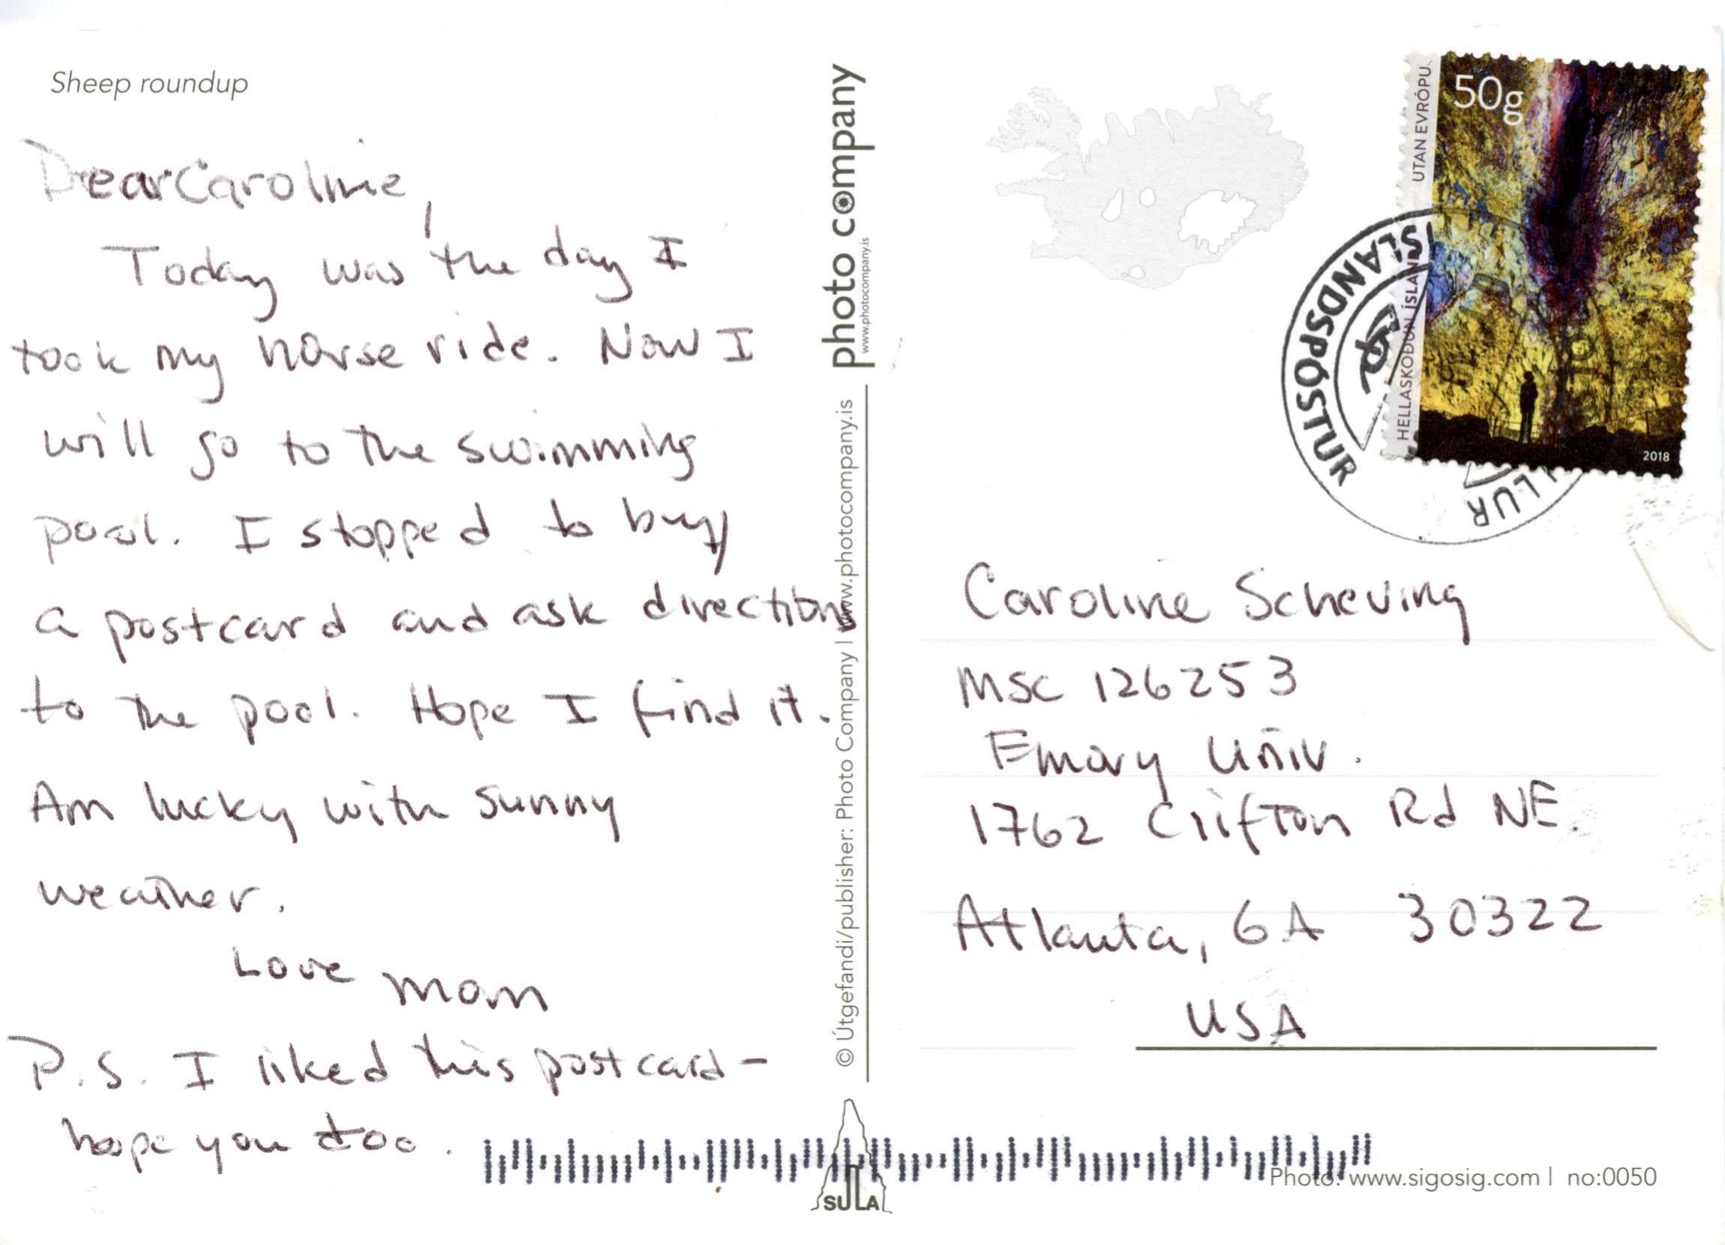 Sheep roundup
Dear Caroline,
Today was the day I
took my horse ride. Now I
will go to the swimming
pool. I stopped to buy
a postcard and ask directions
to the pool. Hope I find it.
Am lucky with sunny
weather.
Love Mom
P.S. I liked this postcard-
hope you too.
photo company
www.photocompany.is
© Útgefandi/publisher: Photo Company | www.photocompany.is
SULA
50g
UTAN EVRÓPU
HELLASKOÐUN ÍSLAND
2018
ÍSLANDSPÓSTUR
Caroline Scheving
MSC 126253
Emory Univ.
1762 Clifton Rd NE.
Atlanta, GA 30322
USA
Photo: www.sigosig.com | no:0050